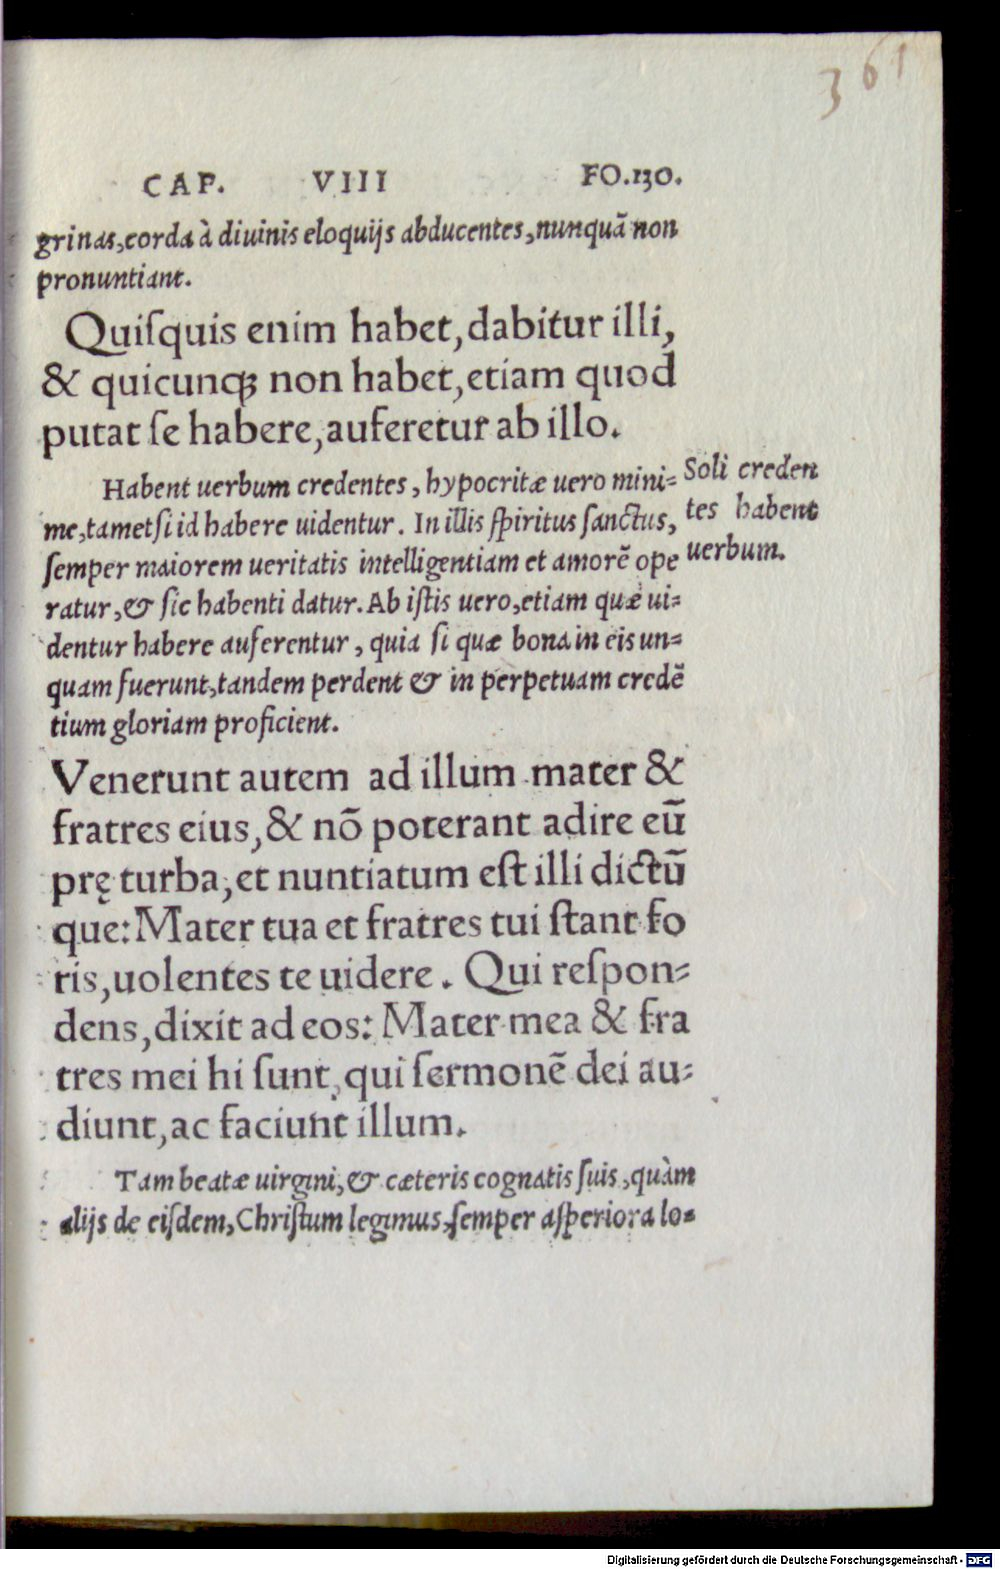 361
CAP. VIII FO.130.
grinas,corda à diuinis eloquijs abducentes,nunquã non
pronuntiant.
Quiſquis enim habet,dabitur illi,
& quicunqꝫ non habet,etiam quod
putat ſe habere,auferetur ab illo.
Habent uerbum credentes, hypocritæ uero mini-
me,tametſi id habere uidentur. In illis ſpiritus ſanctus,
ſemper maiorem ueritatis intelligentiam et amorẽ ope
ratur,& ſic habenti datur. Ab iſtis uero,etiam quæ ui-
dentur habere auferentur, quia ſi quæ bona in eis un-
quam fuerunt,tandem perdent & in perpetuam credẽ
tium gloriam proficient.
Soli creden
tes habent
uerbum.
Venerunt autem ad illum mater &
fratres eius,& nõ poterant adire eũ
prę turba,et nuntiatum eſt illi dictũ
que: Mater tua et fratres tui ſtant fo
ris,uolentes te uidere. Qui reſpon-
dens,dixit ad eos: Mater mea & fra
tres mei hi ſunt,qui ſermonẽ dei au-
diunt,ac faciunt illum.
Tam beatæ uirgini,& cæteris cognatis ſuis,quàm
alijs de eiſdem,Chriſtum legimus,ſemper aſperiora lo-
Digitalisierung gefördert durch die Deutsche Forschungsgemeinschaft - DFG